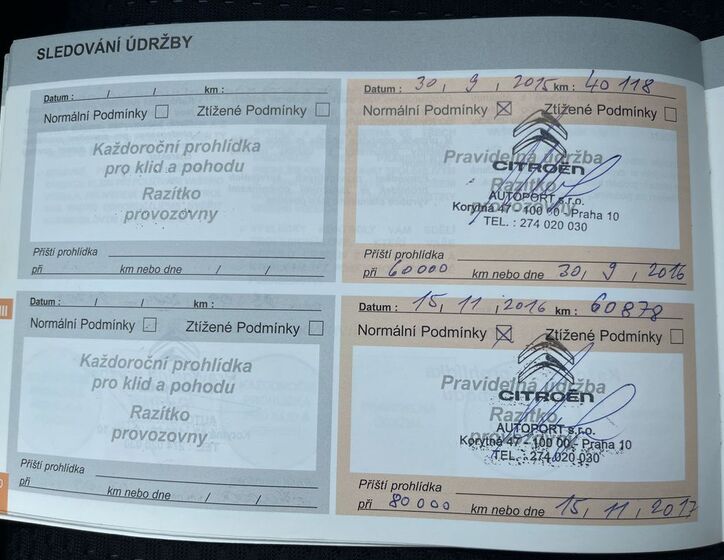 SLEDOVÁNÍ ÚDRŽBY
Datum : / / km :
Normální Podmínky Ztížené Podmínky
Každoroční prohlídka
pro klid a pohodu
Razítko
provozovny
Příští prohlídka
při km nebo dne / /
Datum : 30, 9, 2015 km : 40 118
Normální Podmínky Ztížené Podmínky
Pravidelná údržba
Razítko
provozovny
CITROËN
AUTOPORT s.r.o.
Korytná 47 - 100 00 - Praha 10
TEL. : 274 020 030
Příští prohlídka
při 60000 km nebo dne 30, 9, 2016
Datum : / / km :
Normální Podmínky Ztížené Podmínky
Každoroční prohlídka
pro klid a pohodu
Razítko
provozovny
Příští prohlídka
při km nebo dne / /
Datum : 15, 11, 2016 km : 60878
Normální Podmínky Ztížené Podmínky
Pravidelná údržba
Razítko
provozovny
CITROËN
AUTOPORT s.r.o.
Korytná 47 - 100 00 - Praha 10
TEL. : 274 020 030
Příští prohlídka
při 80000 km nebo dne 15, 11, 2017